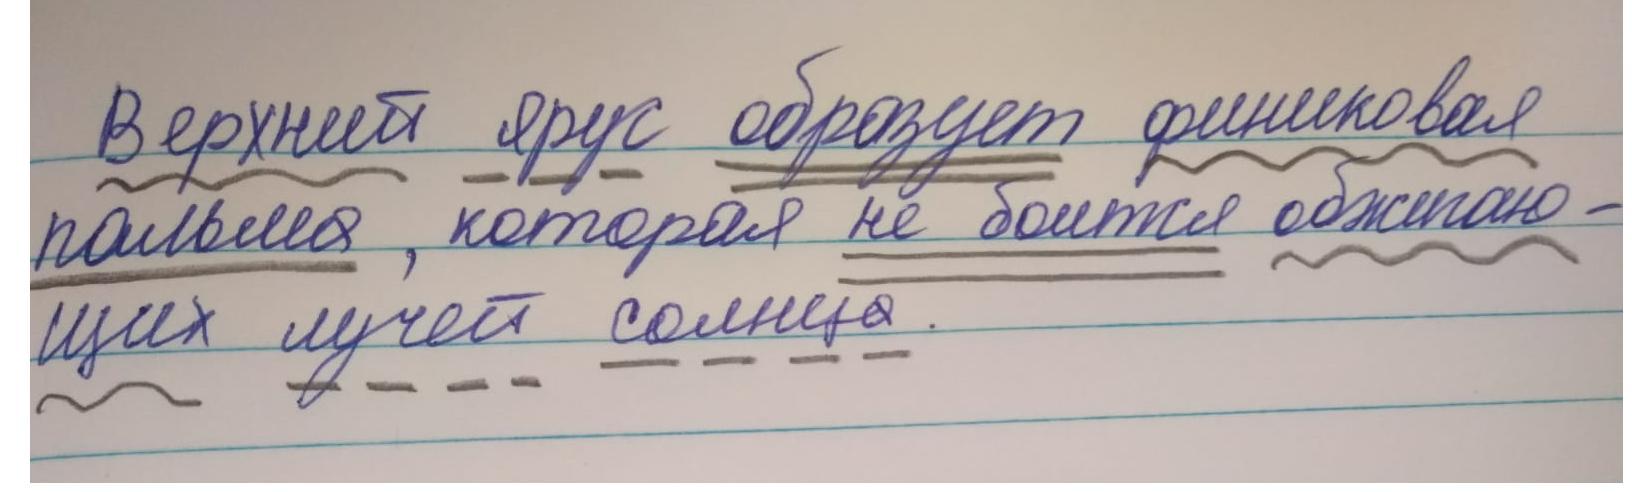 Верхний ярус образует финиковая
пальма, которая не боится обжигаю-
щих лучей солнца.